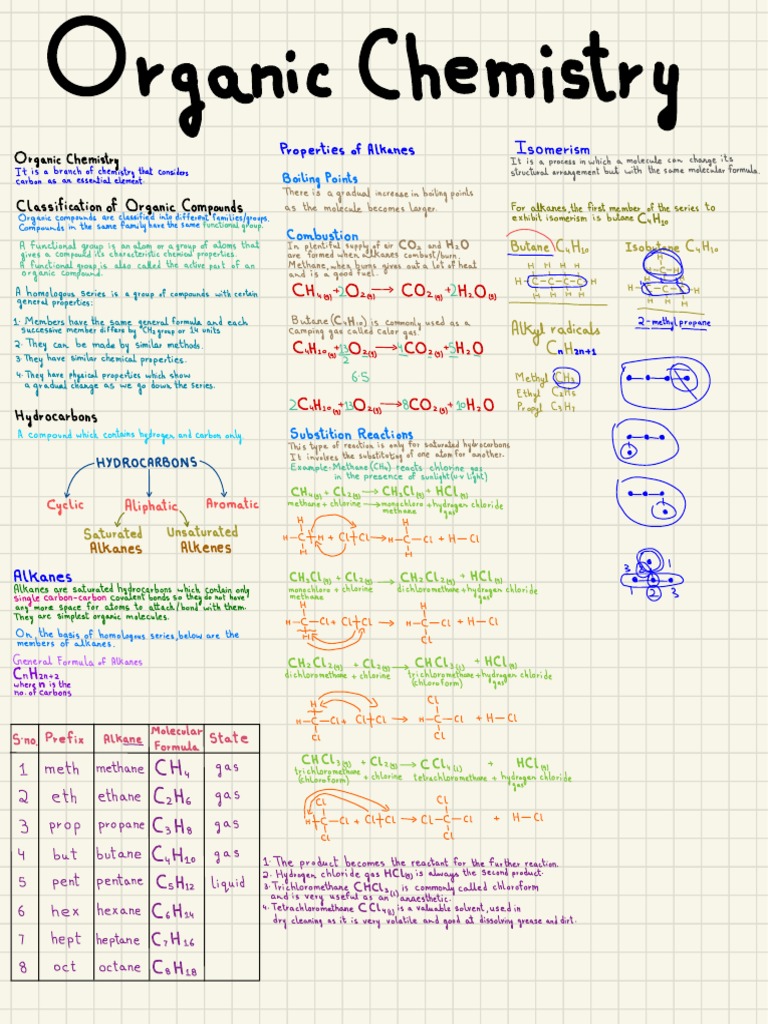 Organic Chemistry
Organic Chemistry
It is a branch of chemistry that considers
carbon as an essential element.
Classification of Organic Compounds
Organic compounds are classified into different families/groups.
Compounds in the same family have the same functional group.
A functional group is an atom or a group of atoms that
gives a compound its characteristic chemical properties.
A functional group is also called the active part of an
organic compound.
A homologous series is a group of compounds with certain
general properties:
1. Members have the same general formula and each
successive member differs by CH₂ group or 14 units
2. They can be made by similar methods.
3. They have similar chemical properties.
4. They have physical properties which show
a gradual change as we go down the series.
Hydrocarbons
A compound which contains hydrogen and carbon only.
HYDROCARBONS
Cyclic Aliphatic Aromatic
Saturated Unsaturated
Alkanes Alkenes
Alkanes
Alkanes are saturated hydrocarbons which contain only
single carbon-carbon covalent bonds so they do not have
any more space for atoms to attach/bond with them.
They are simplest organic molecules.
On, the basis of homologous series, below are the
members of alkanes.
General Formula of Alkanes
CnH2n+2
where n is the
no. of carbons
S.no. Prefix Alkane Molecular Formula State
1 meth methane CH₄ gas
2 eth ethane C₂H₆ gas
3 prop propane C₃H₈ gas
4 but butane C₄H₁₀ gas
5 pent pentane C₅H₁₂ liquid
6 hex hexane C₆H₁₄
7 hept heptane C₇H₁₆
8 oct octane C₈H₁₈
Properties of Alkanes
Boiling Points
There is a gradual increase in boiling points
as the molecule becomes larger.
Combustion
In plentiful supply of air CO₂ and H₂O
are formed when alkanes combust/burn.
Methane, when burns gives out a lot of heat
and is a good fuel.
CH₄(g)+2O₂(g)→CO₂(g)+2H₂O(g)
Butane (C₄H₁₀) is commonly used as a
camping gas called calor gas.
C₄H₁₀(g)+13/2O₂(g)→4CO₂(g)+5H₂O
6.5
2C₄H₁₀(g)+13O₂(g)→8CO₂(g)+10H₂O
Substition Reactions
This type of reaction is only for saturated hydrocarbons
It involves the substituting of one atom for another.
Example: Methane (CH₄) reacts chlorine gas
in the presence of sunlight (uv light)
CH₄(g) + Cl₂(g) → CH₃Cl(g) + HCl(g)
methane + chlorine → monochloro + hydrogen chloride
methane gas
H H
H—C—H + Cl—Cl → H—C—Cl + H—Cl
H H
CH₃Cl(g) + Cl₂(g) → CH₂Cl₂(g) + HCl(g)
monochloro + chlorine dichloromethane + hydrogen chloride
methane gas
H H
H—C—Cl + Cl—Cl → H—C—Cl + H—Cl
H Cl
CH₂Cl₂(g) + Cl₂(g) → CHCl₃(l) + HCl(g)
dichloromethane + chlorine trichloromethane + hydrogen chloride
(chloroform) gas
H Cl
H—C—Cl + Cl—Cl → H—C—Cl + H—Cl
Cl Cl
CHCl₃(g) + Cl₂(g) → CCl₄(l) + HCl(g)
trichloromethane + chlorine tetrachloromethane + hydrogen chloride
(chloroform) gas
Cl Cl
H—C—Cl + Cl—Cl → Cl—C—Cl + H—Cl
Cl Cl
1. The product becomes the reactant for the further reaction.
2. Hydrogen chloride gas HCl(g) is always the second product.
3. Trichloromethane CHCl₃(l) is commonly called chloroform
and is very useful as an anaesthetic.
4. Tetrachloromethane CCl₄(l) is a valuable solvent, used in
dry cleaning as it is very volatile and good at dissolving grease and dirt.
Isomerism
It is a process in which a molecule can change its
structural arrangement but with the same molecular formula.
For alkanes, the first member of the series to
exhibit isomerism is butane C₄H₁₀
Butane C₄H₁₀ Isobutane C₄H₁₀
H H H H
H—C—C—C—C—H
H H H H
H
H—C—H
H—C—C—C—H
H H H
2-methyl propane
Alkyl radicals
CnH2n+1
Methyl CH₃
Ethyl C₂H₅
Propyl C₃H₇
3 2 1
1 2 3